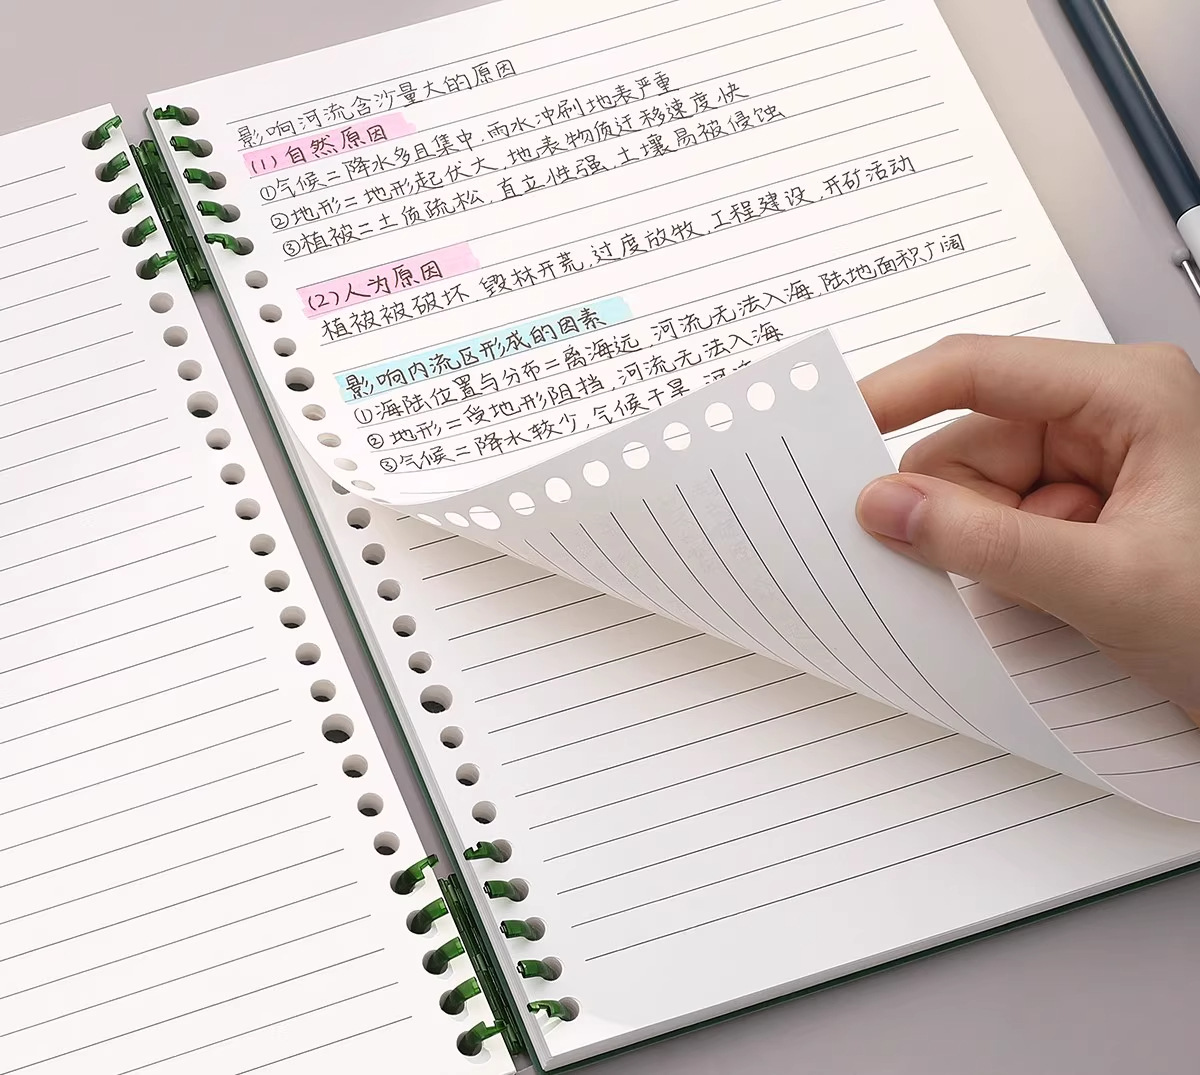 影响河流含沙量大的原因
(1)自然原因
①气候=降水多且集中,雨水冲刷地表严重
②地形=地形起伏大,地表物质迁移速度快
③植被=土质疏松,直立性强,土壤易被侵蚀
(2)人为原因
植被被破坏,毁林开荒,过度放牧,工程建设,开矿活动
影响内流区形成的因素
①海陆位置与分布=离海远,河流无法入海,陆地面积广阔
②地形=受地形阻挡,河流无法入海
③气候=降水较少,气候干旱,河流